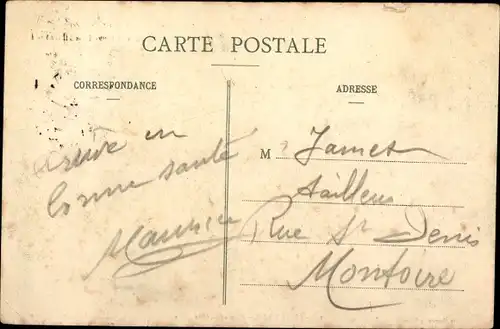 CARTE POSTALE
CORRESPONDANCE
ADRESSE
arrivé en
bonne santé
Maurice
M James
tailleur
Rue St Denis
Montoire